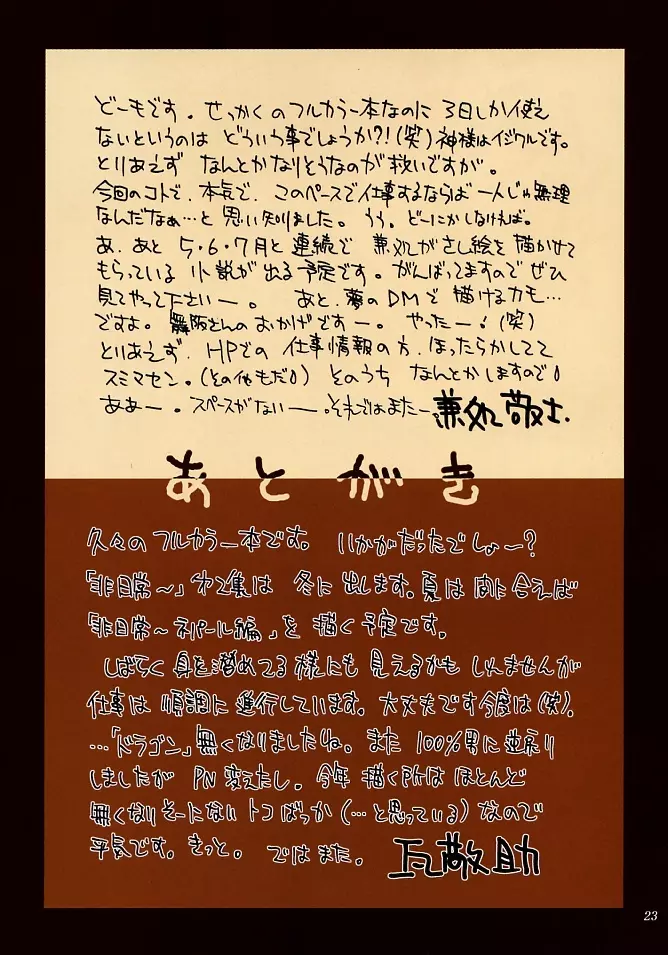 どーもです。せっかくのフルカラー本なのに 3日しか使え
ないというのは どういう事でしょうか?!(笑)神様はイジワルです。
とりあえず なんとかなりそうなのが救いですが。
今回のコトで、本気で、このペースで仕事するならば一人じゃ無理
なんだなぁ…と 思い知りました。うう。どーにかしなければ。
あ、あと 5・6・7月と連続で 兼処がさし絵を描かせて
もらっている 小説が出る予定です。がんばってますので ぜひ
見てやって下さいー。 あと、夢のDMで描けるカモ…
ですよ。舞阪さんのおかげですー。やったー!(笑)
とりあえず、HPでの 仕事情報の方、ほったらかしてて
スミマセン。(その他もだ!)そのうち なんとかしますので!
ああー。スペースがないー。それではまたー。兼処敬士.
あとがき
久々のフルカラー本です。いかがだったでしょー?
「非日常〜」第2集は 冬に出します。夏は間に合えば
「非日常〜ネパール編」を 描く予定です。
しばらく身を潜めてる様にも 見えるかも しれませんが
仕事は 順調に進行しています。大丈夫です今度は(笑)。
…「ドラゴン」無くなりましたしね。また 100%男に逆戻り
しましたが PN変えたし。今年 描く所は ほとんど
無くなりそーにない トコばっか(…と思っている)なので
平気です。きっと。 ではまた。 瓦敬助
23